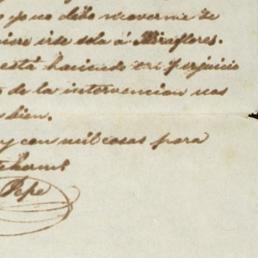 yo no debo moverme de
irse sola á Miraflores.
está haciendo en perjuicio
de la intervencion nos
bien.
y con mil cosas para
Pepe